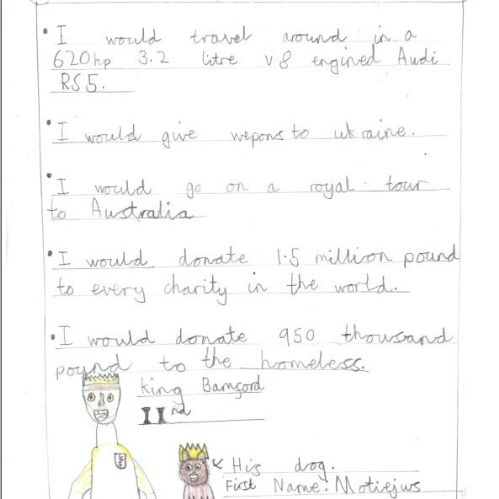 • I would travel around in a
620hp 3.2 litre v8 engined Audi
RS5.
• I would give wepons to ukraine.
• I would go on a royal tour
to Australia
• I would donate 1.5 million pound
to every charity in the world.
• I would donate 950 thousand
pound to the homeless.
king Bamsord
IInd
His dog.
First Name: Motiejus